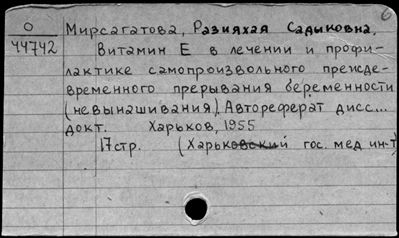 О
44742
Мирсагатова, Разияхая Садыковна.
Витамин Е в лечении и профи-
лактике самопроизвольного прежде-
временного прерывания беременности
(невынашивания). Автореферат дисс...
докт. Харьков, 1955
17стр. (Харьковский гос. мед ин-т)